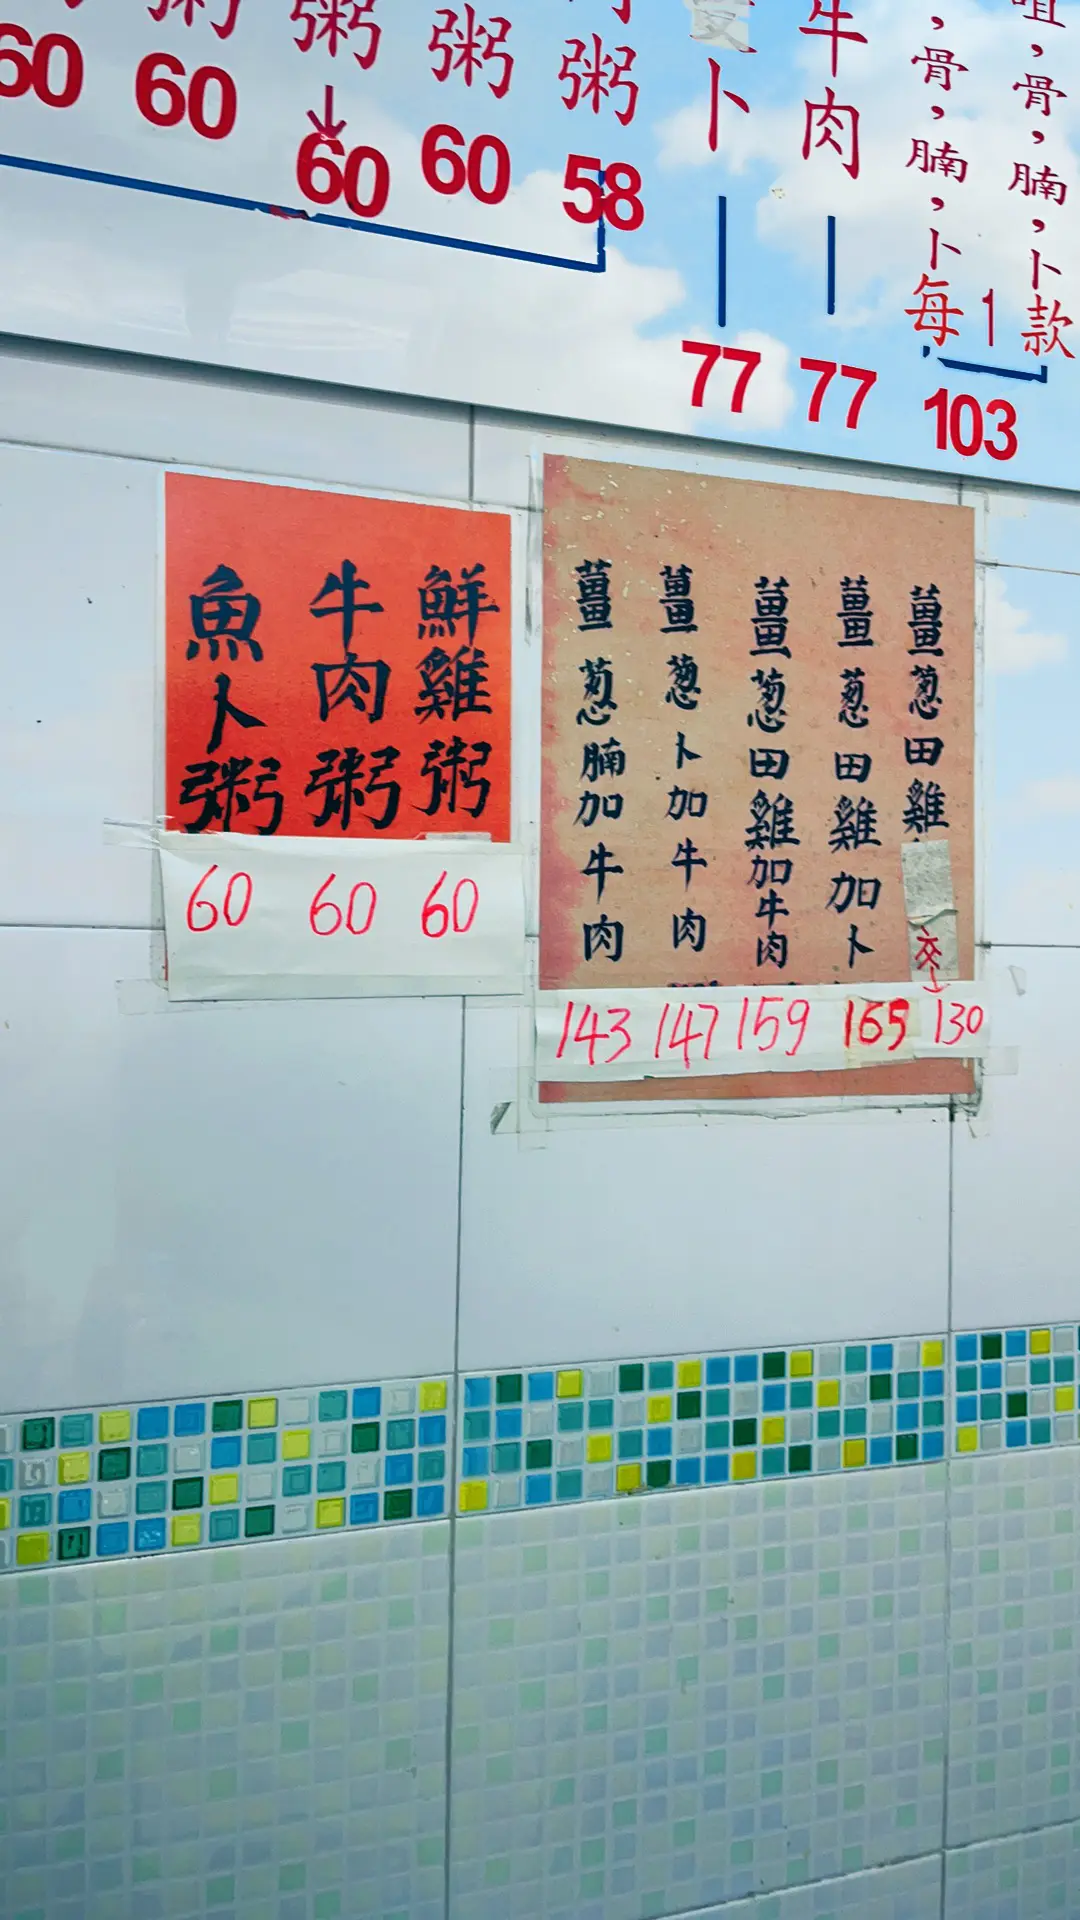 粥 60
粥 60
粥 60
粥 60
粥 58
卜 77
牛肉 77
，骨，腩，卜
咀，骨，腩，卜
每1款
103
鮮雞粥 60
牛肉粥 60
魚卜粥 60
薑葱田雞 130
薑葱田雞加卜 165
薑葱田雞加牛肉 159
薑葱卜加牛肉 147
薑葱腩加牛肉 143